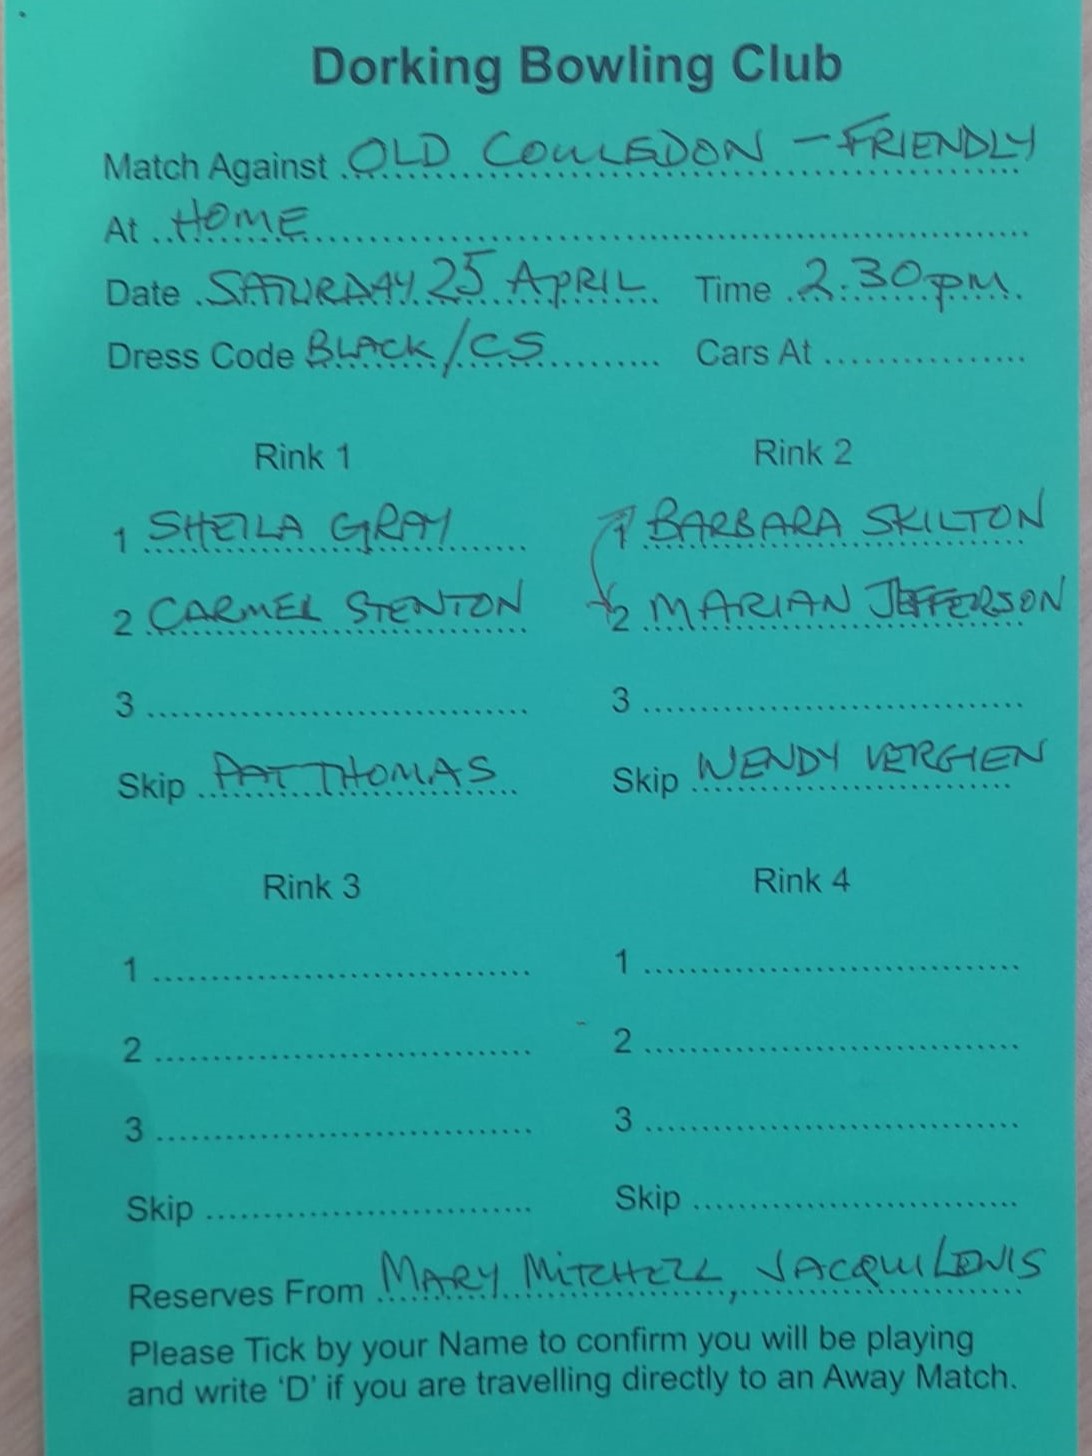 Dorking Bowling Club
Match Against OLD COULSDON - FRIENDLY
At HOME
Date SATURDAY 25 APRIL Time 2.30pm
Dress Code BLACK/CS Cars At
Rink 1 Rink 2
1 SHEILA GRAY 1 BARBARA SKILTON
2 CARMEL STENTON 2 MARIAN JEFFERSON
3 3
Skip PAT THOMAS Skip WENDY
Rink 3 Rink 4
1 1
2 2
3 3
Skip Skip
Reserves From MARY MITCHELL, JACQUI LEWIS
Please Tick by your Name to confirm you will be playing
and write 'D' if you are travelling directly to an Away Match.